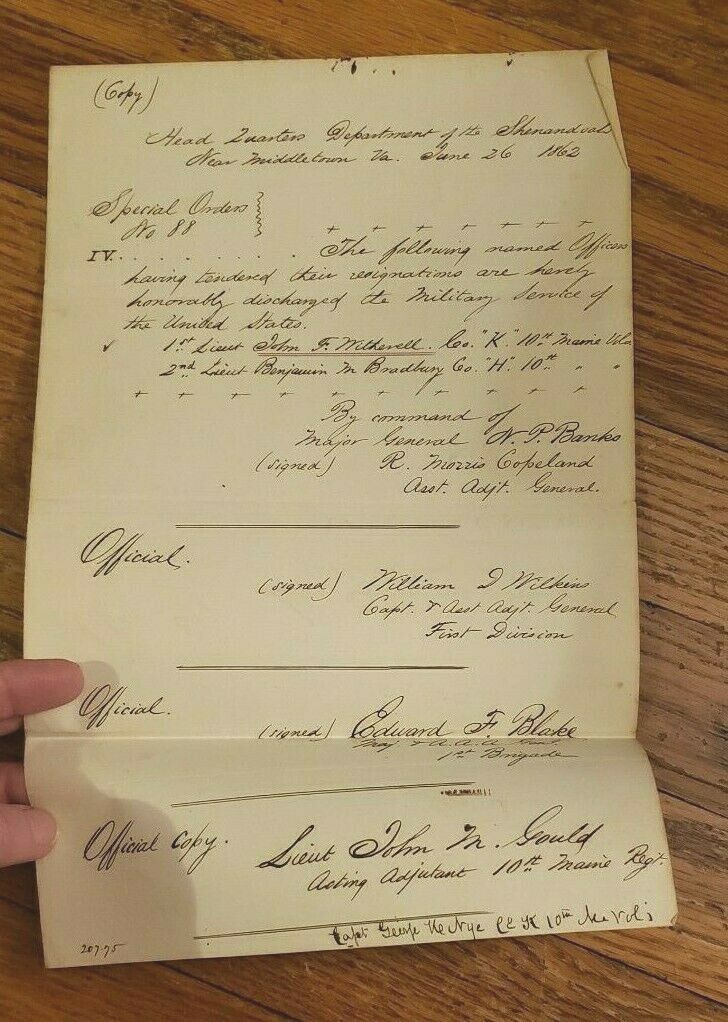 (Copy)
Head Quarters Department of the Shenandoah
Near Middletown Va. June 26 1862
Special Orders
No 88
+ + + + + + +
IV. . . . . . . The following named Officers
having tendered their resignations are hereby
honorably discharged the Military Service of
the United States.
✓ 1st Lieut John F. Witherell. Co. "K." 10th Maine Vols
2nd Lieut Benjamin M Bradbury Co. "H". 10th " "
+ + + + + + + + + + +
By command of
Major General N. P. Banks
(signed) R. Morris Copeland
Asst. Adjt. General.
Official.
(signed) William D Wilkins
Capt. & Asst Adjt. General
First Division
Official.
(signed) Edward F. Blake
Maj & A.A.A.
1st Brigade
Official Copy.
Lieut John M. Gould
Acting Adjutant 10th Maine Regt.
Capt George H Nye Co K 10th Me Vols
207.75